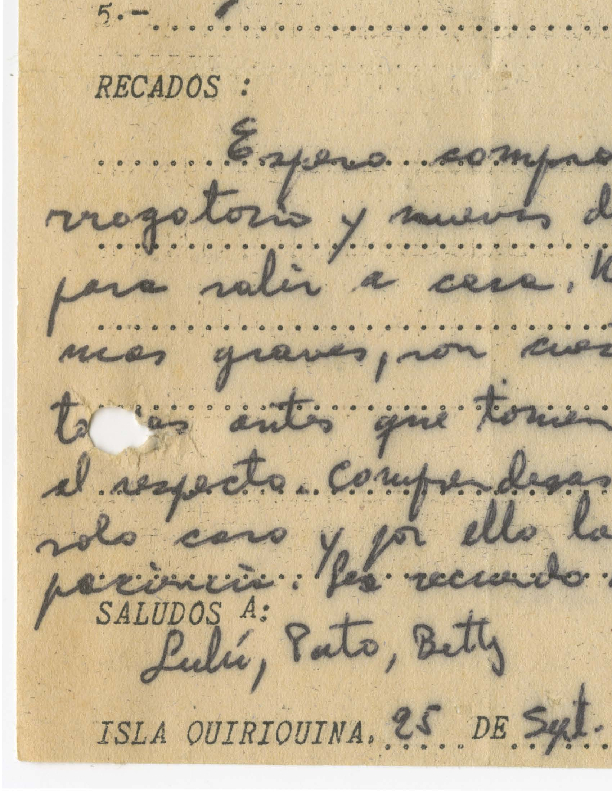 5.-
RECADOS :
Espero compro
rrogatorio y nuevas d
para salir a casa.
mas graves, son cues
antes que tomen
al respecto. Comprendesas
solo caso y por ello la
paciencia. Les recuerdo
SALUDOS A:
Lulú, Pato, Betty
ISLA QUIRIQUINA, 25 DE Sept.